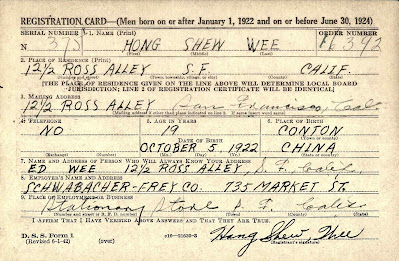 REGISTRATION CARD—(Men born on or after January 1, 1922 and on or before June 30, 1924)
SERIAL NUMBER 1. NAME (Print) ORDER NUMBER
N 375 HONG SHEW WEE 342
(First) (Middle) (Last)
2. PLACE OF RESIDENCE (Print)
12½ ROSS ALLEY S.F. CALIF.
(Number and street) (Town, township, village, or city) (County) (State)
[THE PLACE OF RESIDENCE GIVEN ON THE LINE ABOVE WILL DETERMINE LOCAL BOARD
JURISDICTION; LINE 2 OF REGISTRATION CERTIFICATE WILL BE IDENTICAL]
3. MAILING ADDRESS
12½ ROSS ALLEY San Francisco, Cal
[Mailing address if other than place indicated on line 2. If same insert word same]
4. TELEPHONE 5. AGE IN YEARS 6. PLACE OF BIRTH
NO 19 CONTON
DATE OF BIRTH (Town or county)
OCTOBER 5, 1922 CHINA
(Exchange) (Number) (Mo.) (Day) (Yr.) (State or country)
7. NAME AND ADDRESS OF PERSON WHO WILL ALWAYS KNOW YOUR ADDRESS
ED WEE 12½ ROSS ALLEY, S. F. Calif.
8. EMPLOYER'S NAME AND ADDRESS
SCHWABACHER-FREY CO. 735 MARKET ST.
9. PLACE OF EMPLOYMENT OR BUSINESS
Stationary Store S. F. Calif.
(Number and street or R. F. D. number) (Town) (County) (State)
I AFFIRM THAT I HAVE VERIFIED ABOVE ANSWERS AND THAT THEY ARE TRUE.
D. S. S. Form 1
(Revised 6-1-42) (over) Hong Shew Wee
(Registrant's signature)